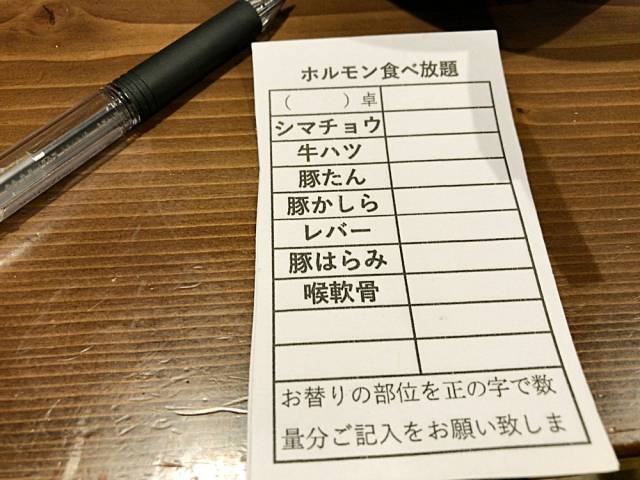 ホルモン食べ放題
（　　　）卓
シマチョウ
牛ハツ
豚たん
豚かしら
レバー
豚はらみ
喉軟骨
お替りの部位を正の字で数
量分ご記入をお願い致しま